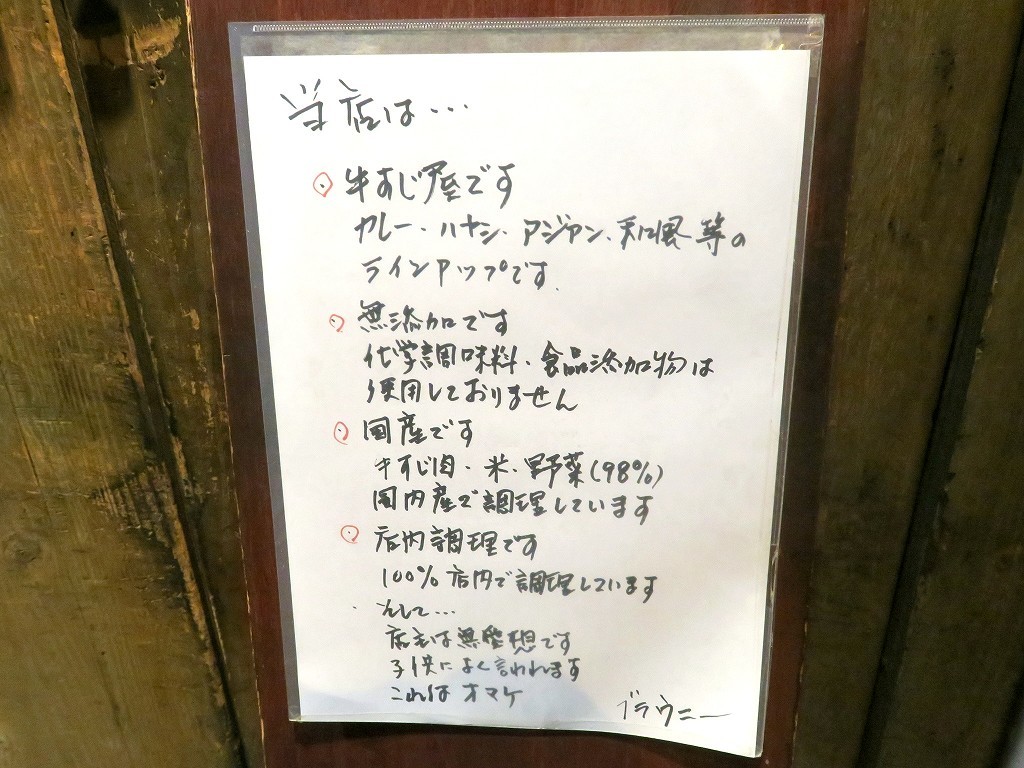 当店は…
牛すじ屋です
カレー・ハヤシ・アジアン・和風等の
ラインアップです.
無添加です
化学調味料・食品添加物は
使用しておりません
国産です
牛すじ肉・米・野菜(98%)
国内産で調理しています
店内調理です
100%店内で調理しています
そして…
店主は無愛想です
子供によく言われます
これはオマケ
ブラウニー